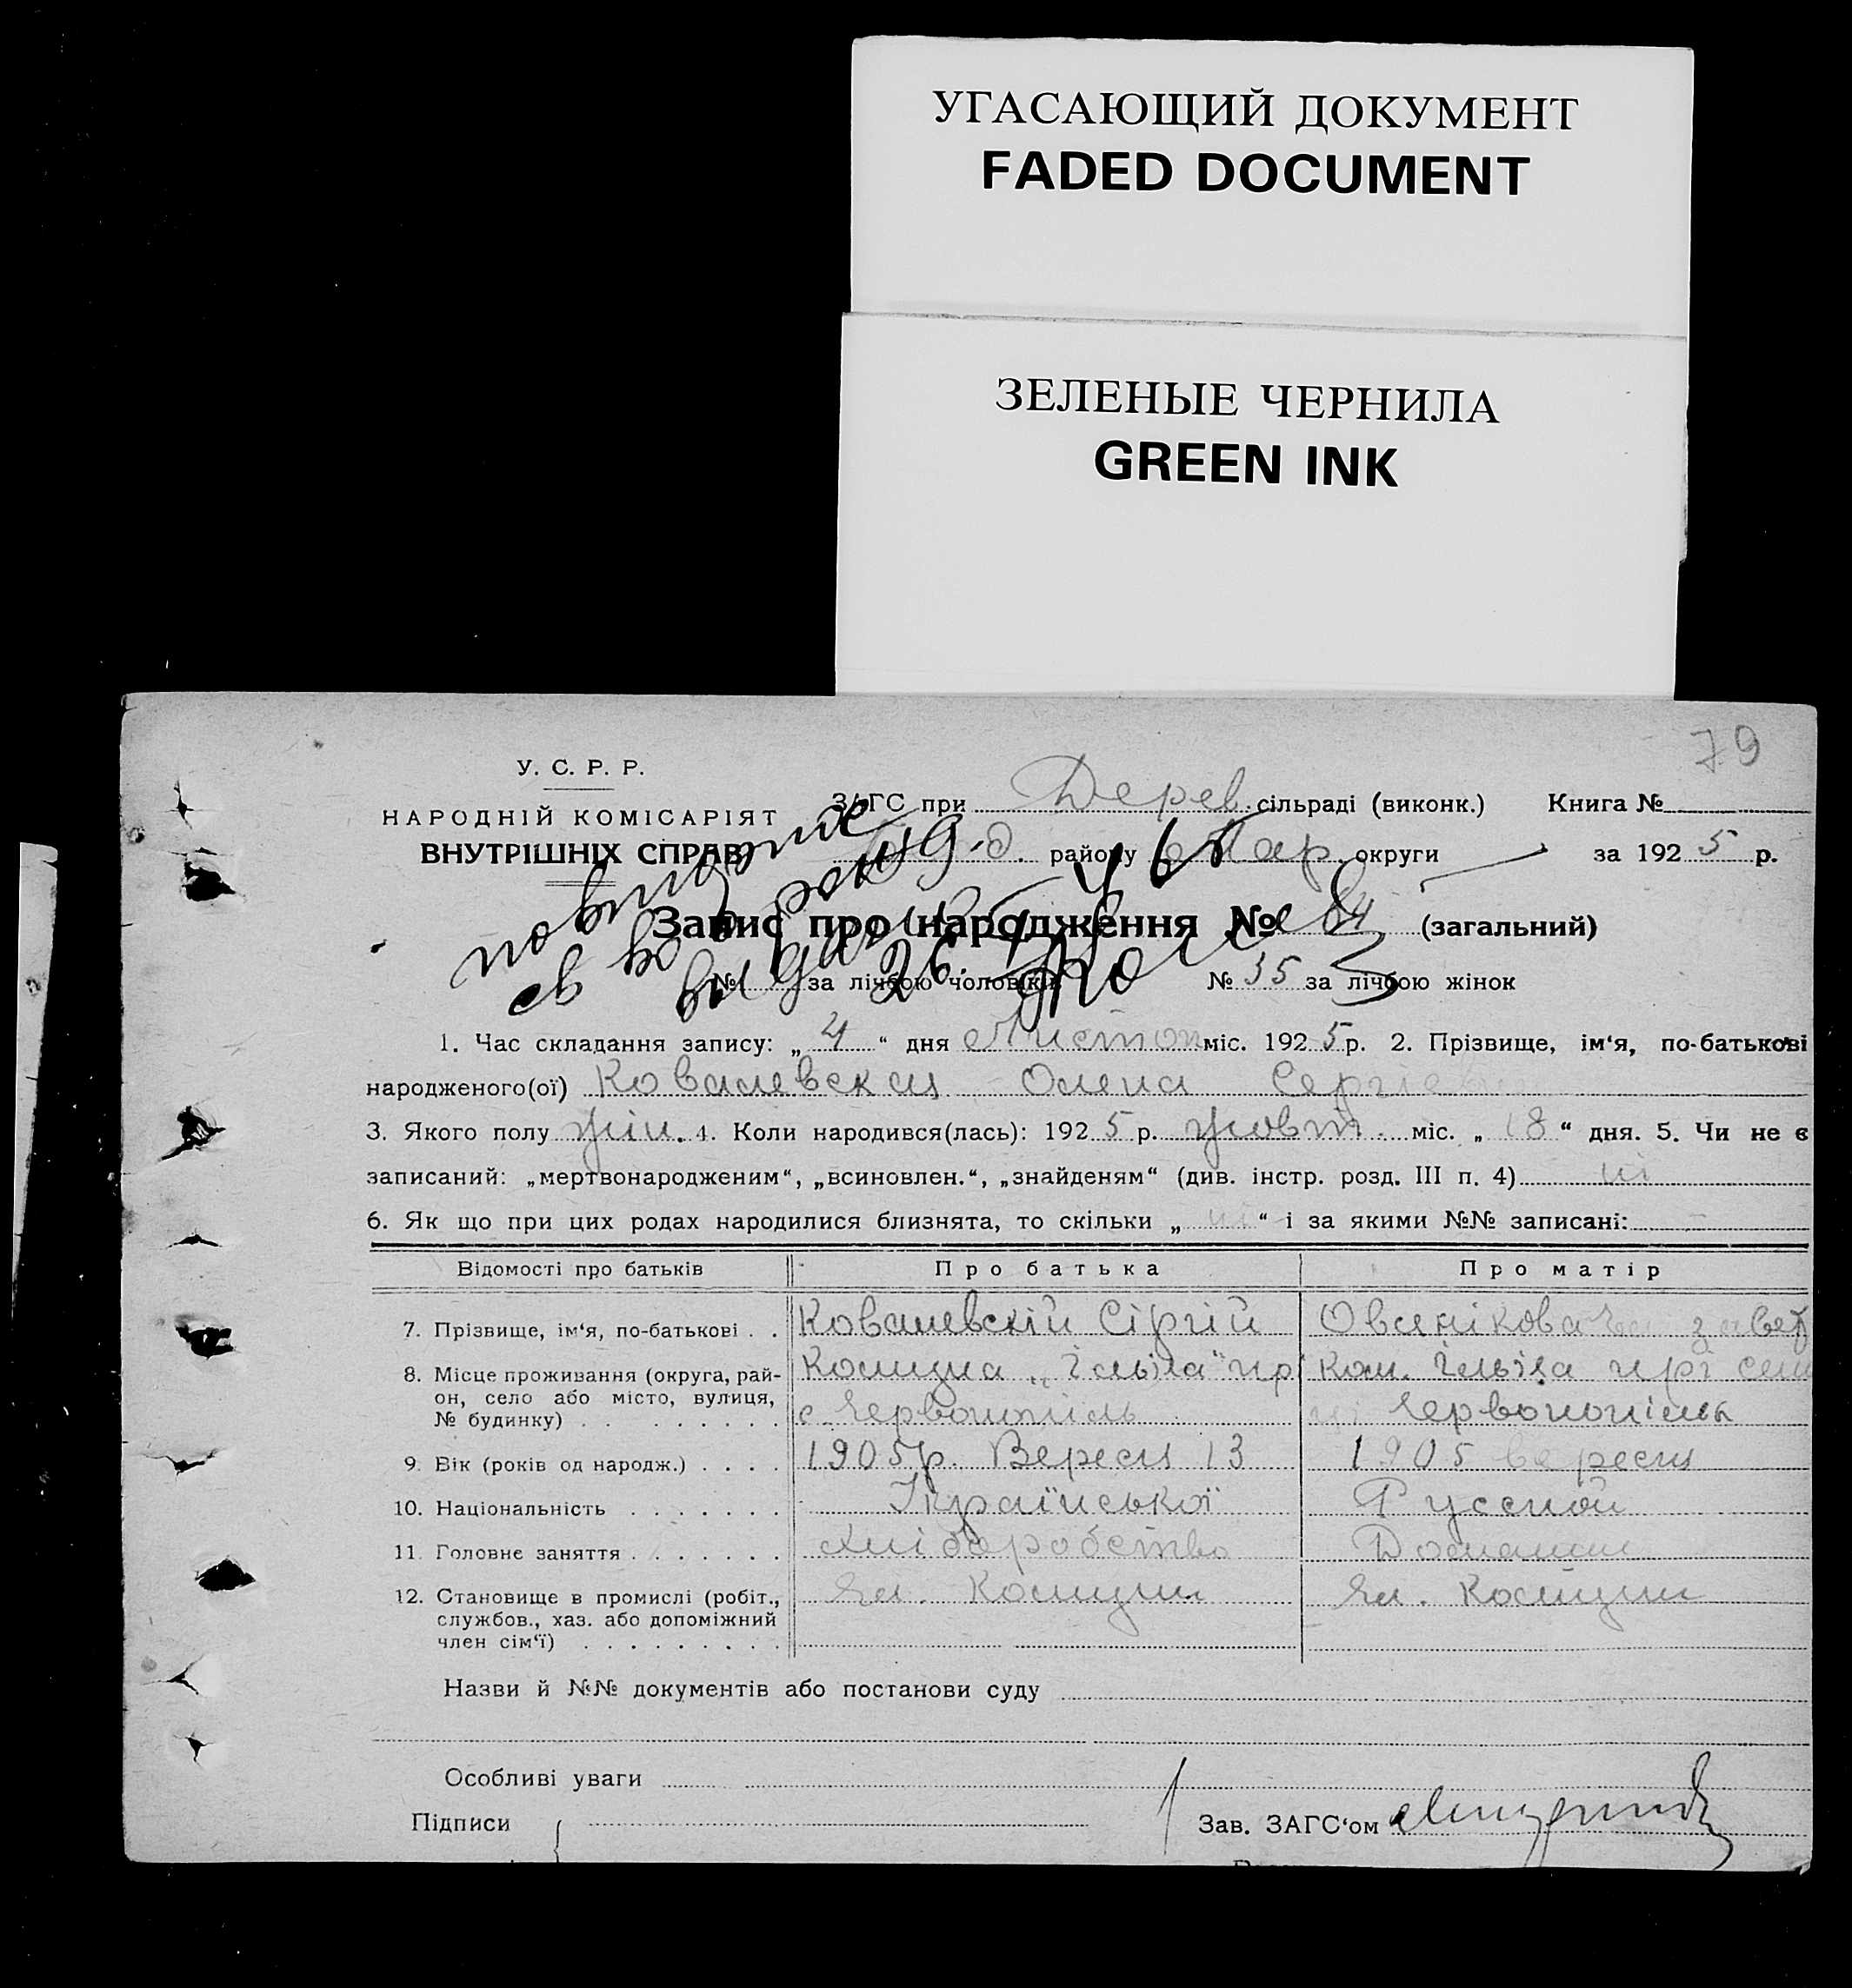 УГАСАЮЩИЙ ДОКУМЕНТ
FADED DOCUMENT
ЗЕЛЕНЫЕ ЧЕРНИЛА
GREEN INK
79
У. С. Р. Р.
НАРОДНІЙ КОМІСАРІЯТ
ВНУТРІШНІХ СПРАВ
ЗАГС при Дерев. сільраді (виконк.) Книга №
району округи за 1925 р.
повторное
св во
выдано 26.
Запис про народження № 64 (загальний)
№ за лічбою чоловіків № 35 за лічбою жінок
1. Час складання запису: „ 4 “ дня Листоп міс. 1925 р. 2. Прізвище, ім‘я, по-батькові
народженого(ої) Ковалевская Олена Сергіев
3. Якого полу жін. 4. Коли народився(лась): 1925 р. жовт. міс. „ 18 “ дня. 5. Чи не є
записаний: „мертвонародженим“, „всиновлен.“, „знайденям“ (див. інстр. розд. III п. 4) ні
6. Як що при цих родах народилися близнята, то скільки „ ні “ і за якими №№ записані: -
Відомості про батьків Про батька Про матір
7. Прізвище, ім‘я, по-батькові . . Ковалевскій Сіргій Овсянікова
8. Місце проживання (округа, рай-
он, село або місто, вулиця,
№ будинку) . . . . . . . . .
Комуна прі
с. Червонопіль
Ком. прі
Червонопіль
9. Вік (років од народж.) . . . . 1905р. Вересня 13 1905 вересня
10. Національність . . . . . . . Української Русской
11. Головне заняття . . . . . . . хліборобство Домашн
12. Становище в промислі (робіт.,
службов., хаз. або допоміжний
член сім‘ї) . . . . . . . . .
Чл. Комуни Чл. Комуни
Назви й №№ документів або постанови суду
Особливі уваги
Підписи
Зав. ЗАГС‘ом